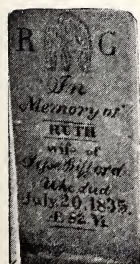 R G
In
Memory of
RUTH
wife of
Gifford
Who died
July 20, 1835.
Æ. 52 Y.